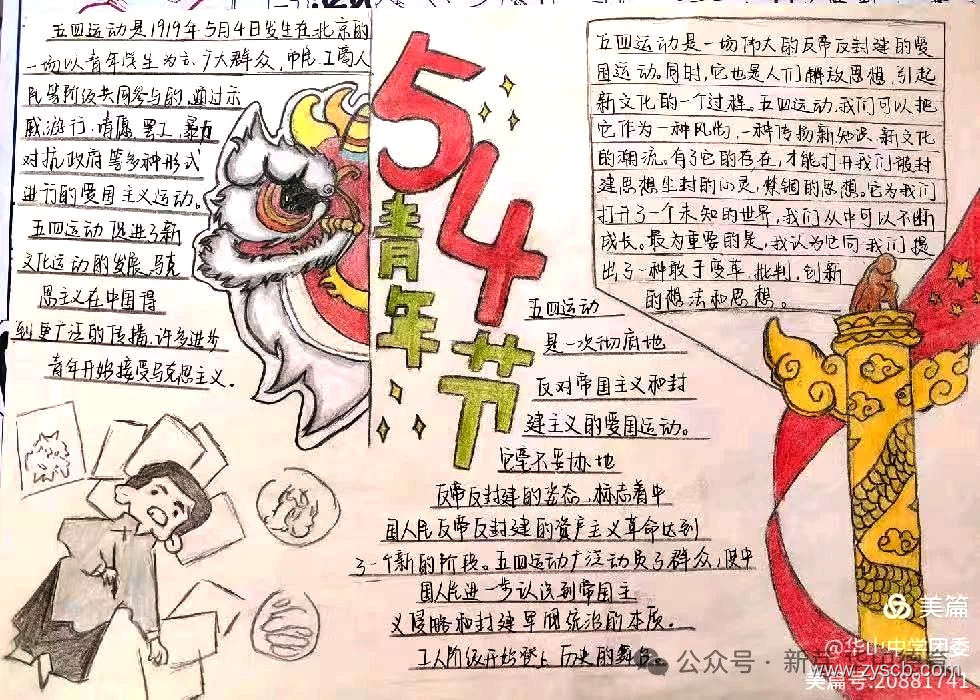 五四运动是1919年5月4日发生在北京的
一场以青年学生为主,广大群众,市民,工商人
民等阶级共同参与的,通过示
威,游行,请愿,罢工,暴力
对抗政府等多种形式
进行的爱国主义运动。
五四运动促进了新
文化运动的发展,马克
思主义在中国得
到更广泛的传播,许多进步
青年开始接受马克思主义。
54
青年节
五四运动是一场伟大的反帝反封建的爱
国运动。同时,它也是人们解放思想,引起
新文化的一个过程。五四运动,我们可以把
它作为一种风尚,一种传扬新知识,新文化
的潮流。有了它的存在,才能打开我们被封
建思想尘封的心灵,禁锢的思想。它为我们
打开了一个未知的世界,我们从中可以不断
成长。最为重要的是,我认为它向我们提
出了一种敢于变革,批判,创新
的想法和思想。
五四运动
是一次彻底地
反对帝国主义和封
建主义的爱国运动。
它毫不妥协地
反帝反封建的姿态,标志着中
国人民反帝反封建的资产主义革命达到
了一个新的阶段。五四运动广泛动员了群众,使中
国人民进一步认识到帝国主
义侵略和封建军阀统治的本质。
工人阶级开始登上历史的舞台。
美篇
@华山中学团委
公众号·新
www.zyscb.com
美篇号:20881741